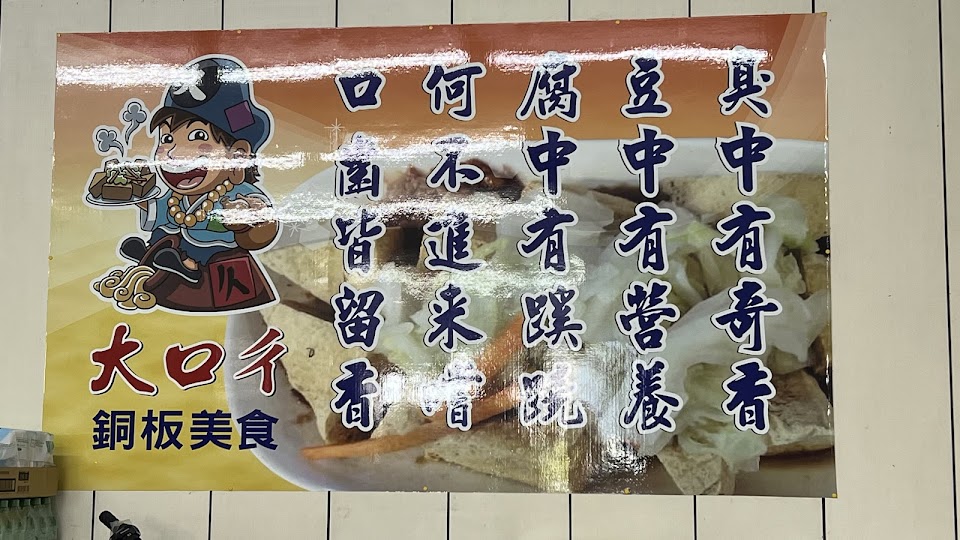 臭中有奇香
豆中有營養
腐中有蹊跷
何不進来嚐
口齒皆留香
大
大口彳
銅板美食